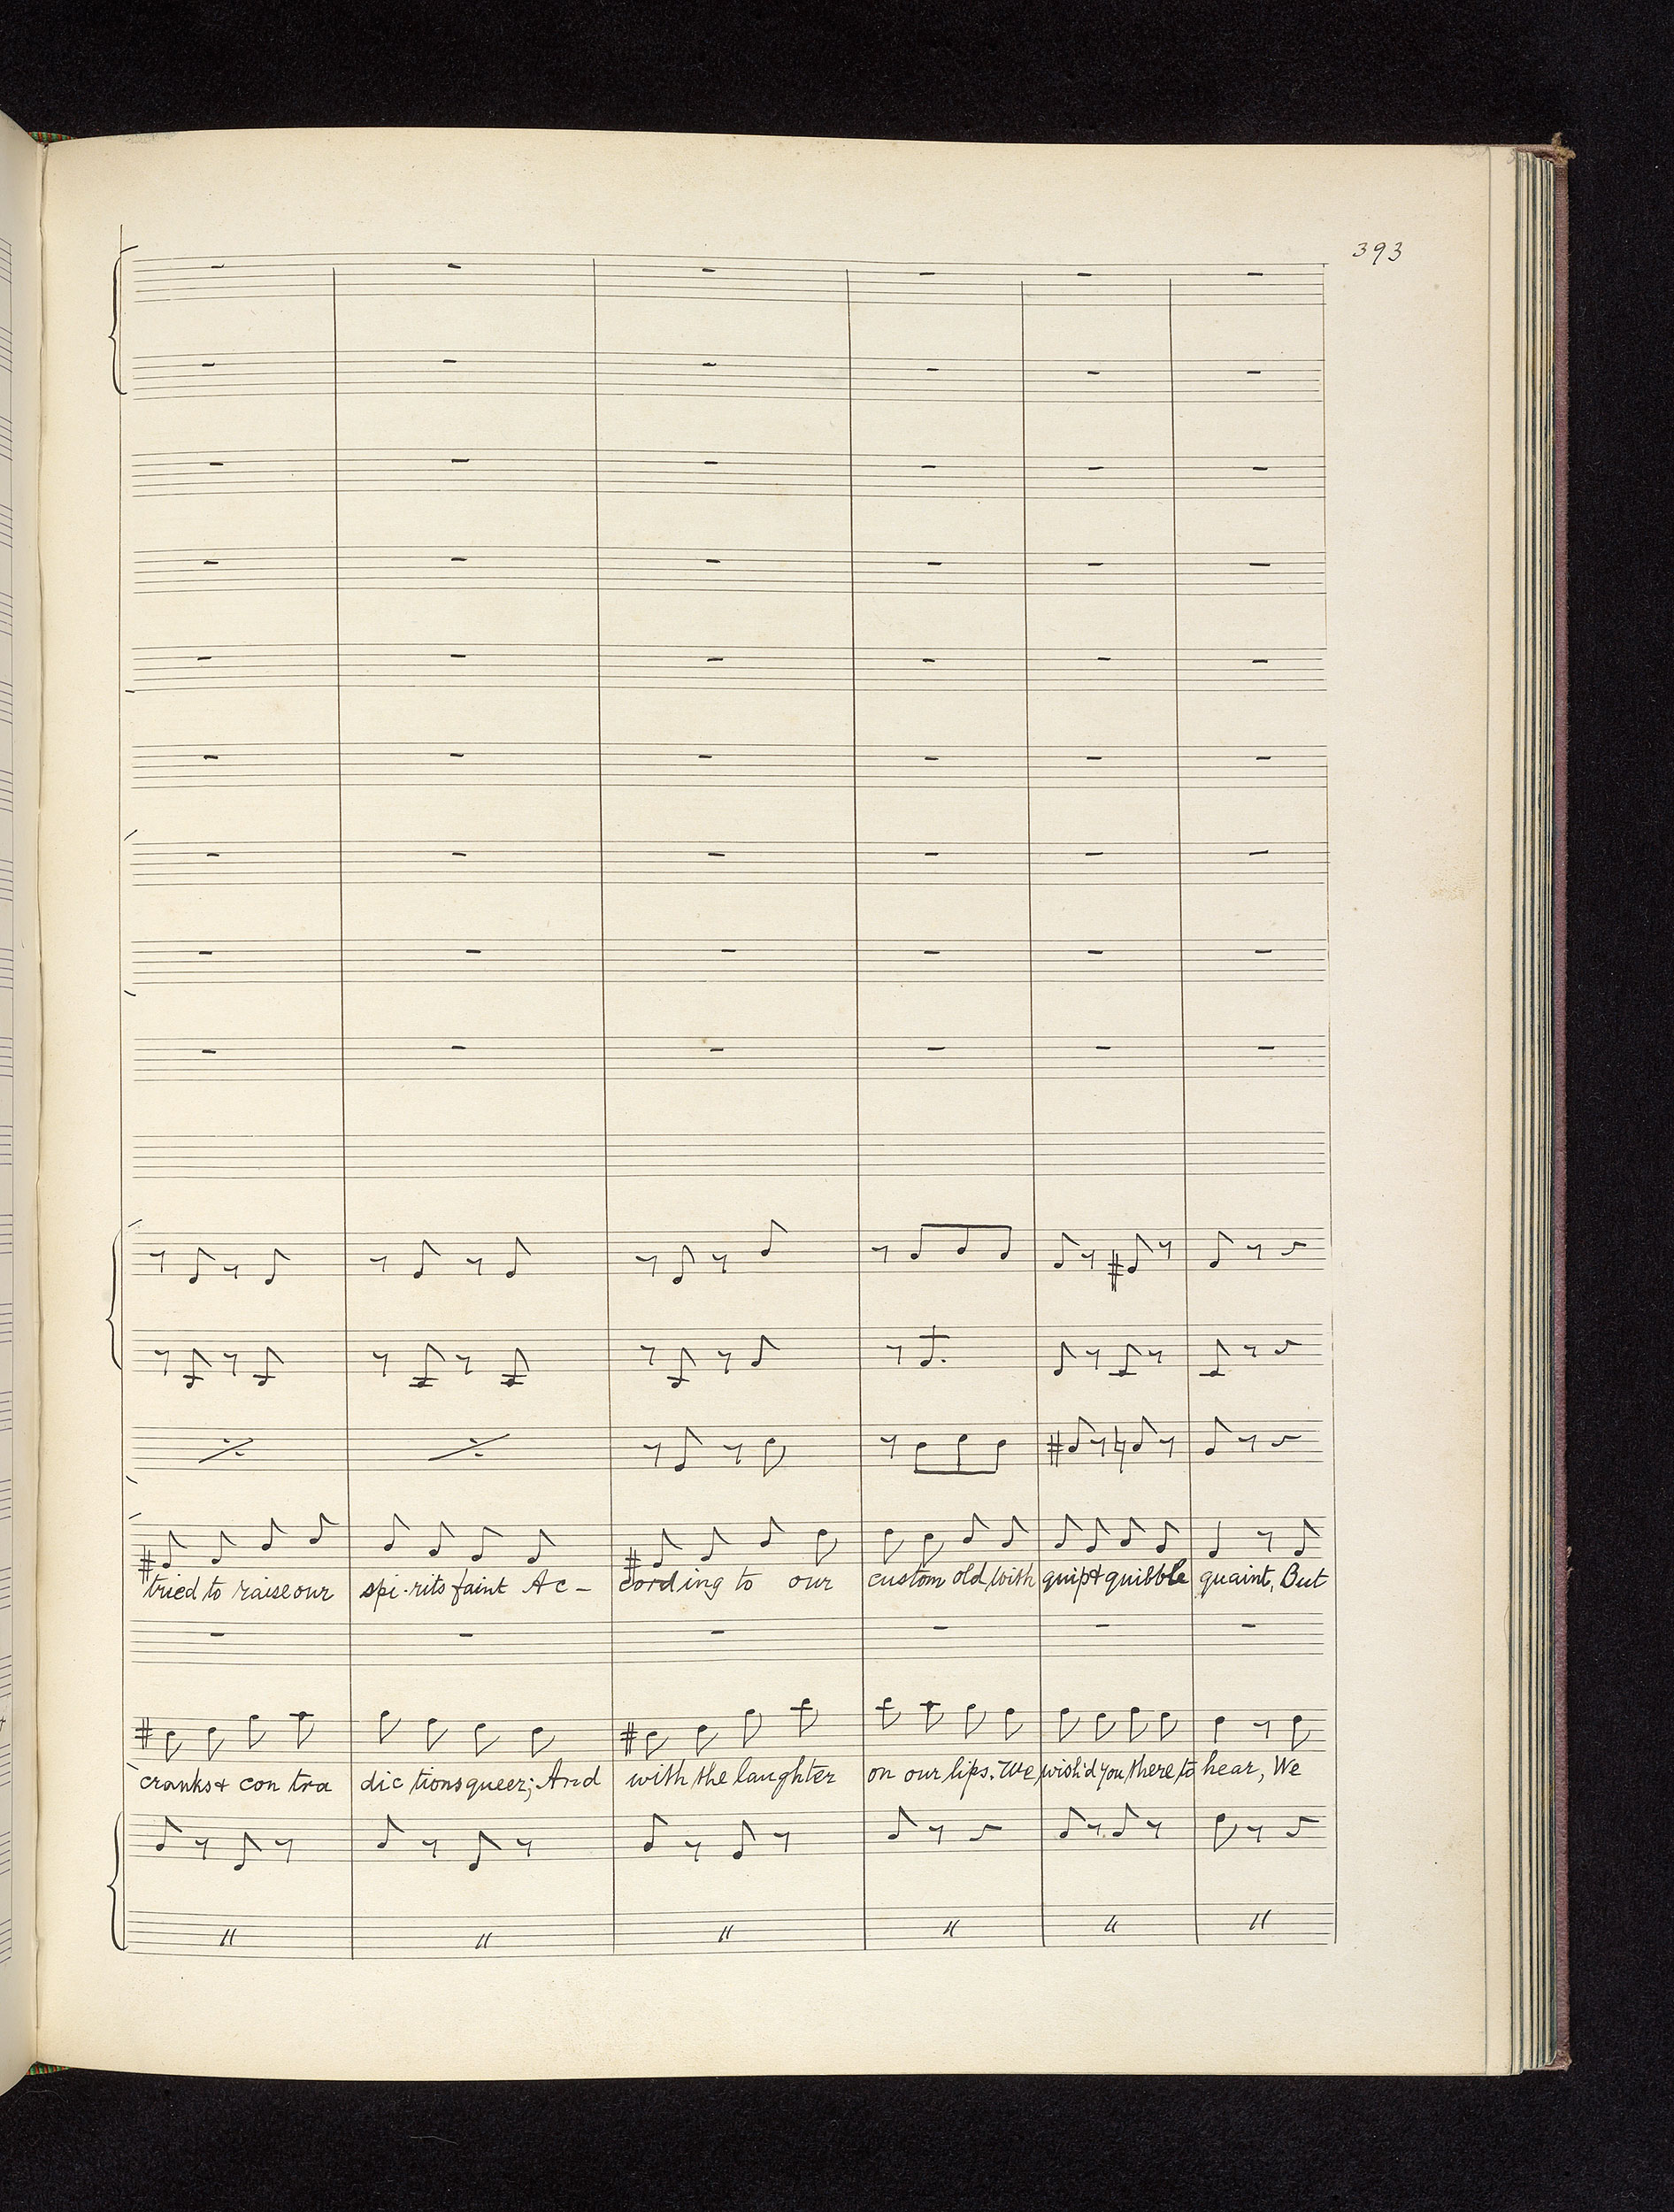 393
tried to raise our spi-rits faint Ac- cording to our custom old with quip & quibble quaint, But
cranks & con tra dic tions queer; And with the laughter on our lips. We wish'd you there to hear, We